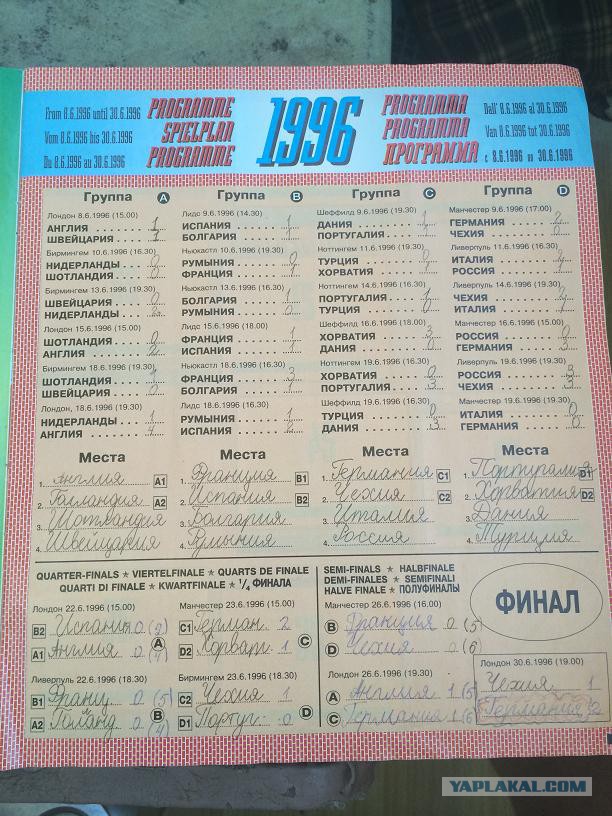 From 8.6.1996 until 30.6.1996
Vom 8.6.1996 bis 30.6.1996
Du 8.6.1996 au 30.6.1996
PROGRAMME
SPIELPLAN
PROGRAMME
1996
PROGRAMMA
PROGRAMMA
ПРОГРАММА
Dall' 8.6.1996 al 30.6.1996
Van 8.6.1996 tot 30.6.1996
с 8.6.1996 по 30.6.1996
Группа A
Лондон 8.6.1996 (15.00)
АНГЛИЯ 1
ШВЕЙЦАРИЯ 1
Бирмингем 10.6.1996 (16.30)
НИДЕРЛАНДЫ 0
ШОТЛАНДИЯ 0
Бирмингем 13.6.1996 (19.30)
ШВЕЙЦАРИЯ 0
НИДЕРЛАНДЫ 2
Лондон 15.6.1996 (16.00)
ШОТЛАНДИЯ 0
АНГЛИЯ 2
Бирмингем 18.6.1996 (19.30)
ШОТЛАНДИЯ 1
ШВЕЙЦАРИЯ 0
Лондон, 18.6.1996 (19.30)
НИДЕРЛАНДЫ 1
АНГЛИЯ 4
Места
1. Англия A1
2. Голландия A2
3. Шотландия
4. Швейцария
Группа B
Лидс 9.6.1996 (14.30)
ИСПАНИЯ 1
БОЛГАРИЯ 1
Ньюкастл 10.6.1996 (19.30)
РУМЫНИЯ 0
ФРАНЦИЯ 1
Ньюкастл 13.6.1996 (16.30)
БОЛГАРИЯ 1
РУМЫНИЯ 0
Лидс 15.6.1996 (18.00)
ФРАНЦИЯ 1
ИСПАНИЯ 1
Ньюкастл 18.6.1996 (16.30)
ФРАНЦИЯ 3
БОЛГАРИЯ 1
Лидс 18.6.1996 (16.30)
РУМЫНИЯ 1
ИСПАНИЯ 2
Места
1. Франция B1
2. Испания B2
3. Болгария
4. Румыния
Группа C
Шеффилд 9.6.1996 (19.30)
ДАНИЯ 1
ПОРТУГАЛИЯ 1
Ноттингем 11.6.1996 (19.30)
ТУРЦИЯ 0
ХОРВАТИЯ 1
Ноттингем 14.6.1996 (16.30)
ПОРТУГАЛИЯ 1
ТУРЦИЯ 0
Шеффилд 16.6.1996 (18.00)
ХОРВАТИЯ 3
ДАНИЯ 0
Ноттингем 19.6.1996 (16.30)
ХОРВАТИЯ 0
ПОРТУГАЛИЯ 3
Шеффилд 19.6.1996 (16.30)
ТУРЦИЯ 0
ДАНИЯ 3
Места
1. Германия C1
2. Чехия C2
3. Италия
4. Россия
Группа D
Манчестер 9.6.1996 (17.00)
ГЕРМАНИЯ 2
ЧЕХИЯ 0
Ливерпуль 11.6.1996 (16.30)
ИТАЛИЯ 2
РОССИЯ 1
Ливерпуль 14.6.1996 (19.30)
ЧЕХИЯ 2
ИТАЛИЯ 1
Манчестер 16.6.1996 (16.00)
РОССИЯ 0
ГЕРМАНИЯ 3
Ливерпуль 19.6.1996 (19.30)
РОССИЯ 3
ЧЕХИЯ 3
Манчестер 19.6.1996 (19.30)
ИТАЛИЯ 0
ГЕРМАНИЯ 0
Места
1. Португалия D1
2. Хорватия D2
3. Дания
4. Турция
QUARTER-FINALS ★ VIERTELFINALE ★ QUARTS DE FINALE
QUARTI DI FINALE ★ KWARTFINALE ★ 1/4 ФИНАЛА
Лондон 22.6.1996 (15.00)
B2 Испания 0 (2)
A
A1 Англия 0 (4)
Ливерпуль 22.6.1996 (18.30)
B1 Франц 0 (5)
B
A2 Голланд 0 (4)
Манчестер 23.6.1996 (15.00)
C1 Герман. 2
C
D2 Хорват. 1
Бирмингем 23.6.1996 (18.30)
C2 Чехия 1
D
D1 Португ. 0
SEMI-FINALS ★ HALBFINALE
DEMI-FINALES ★ SEMIFINALI
HALVE FINALE ★ ПОЛУФИНАЛЫ
Манчестер 26.6.1996 (16.00)
B Франция 0 (5)
D Чехия 0 (6)
Лондон 26.6.1996 (19.30)
A Англия 1 (5)
C Германия 1 (6)
ФИНАЛ
Лондон 30.6.1996 (19.00)
Чехия 1
Германия 2
YAPLAKAL.COM